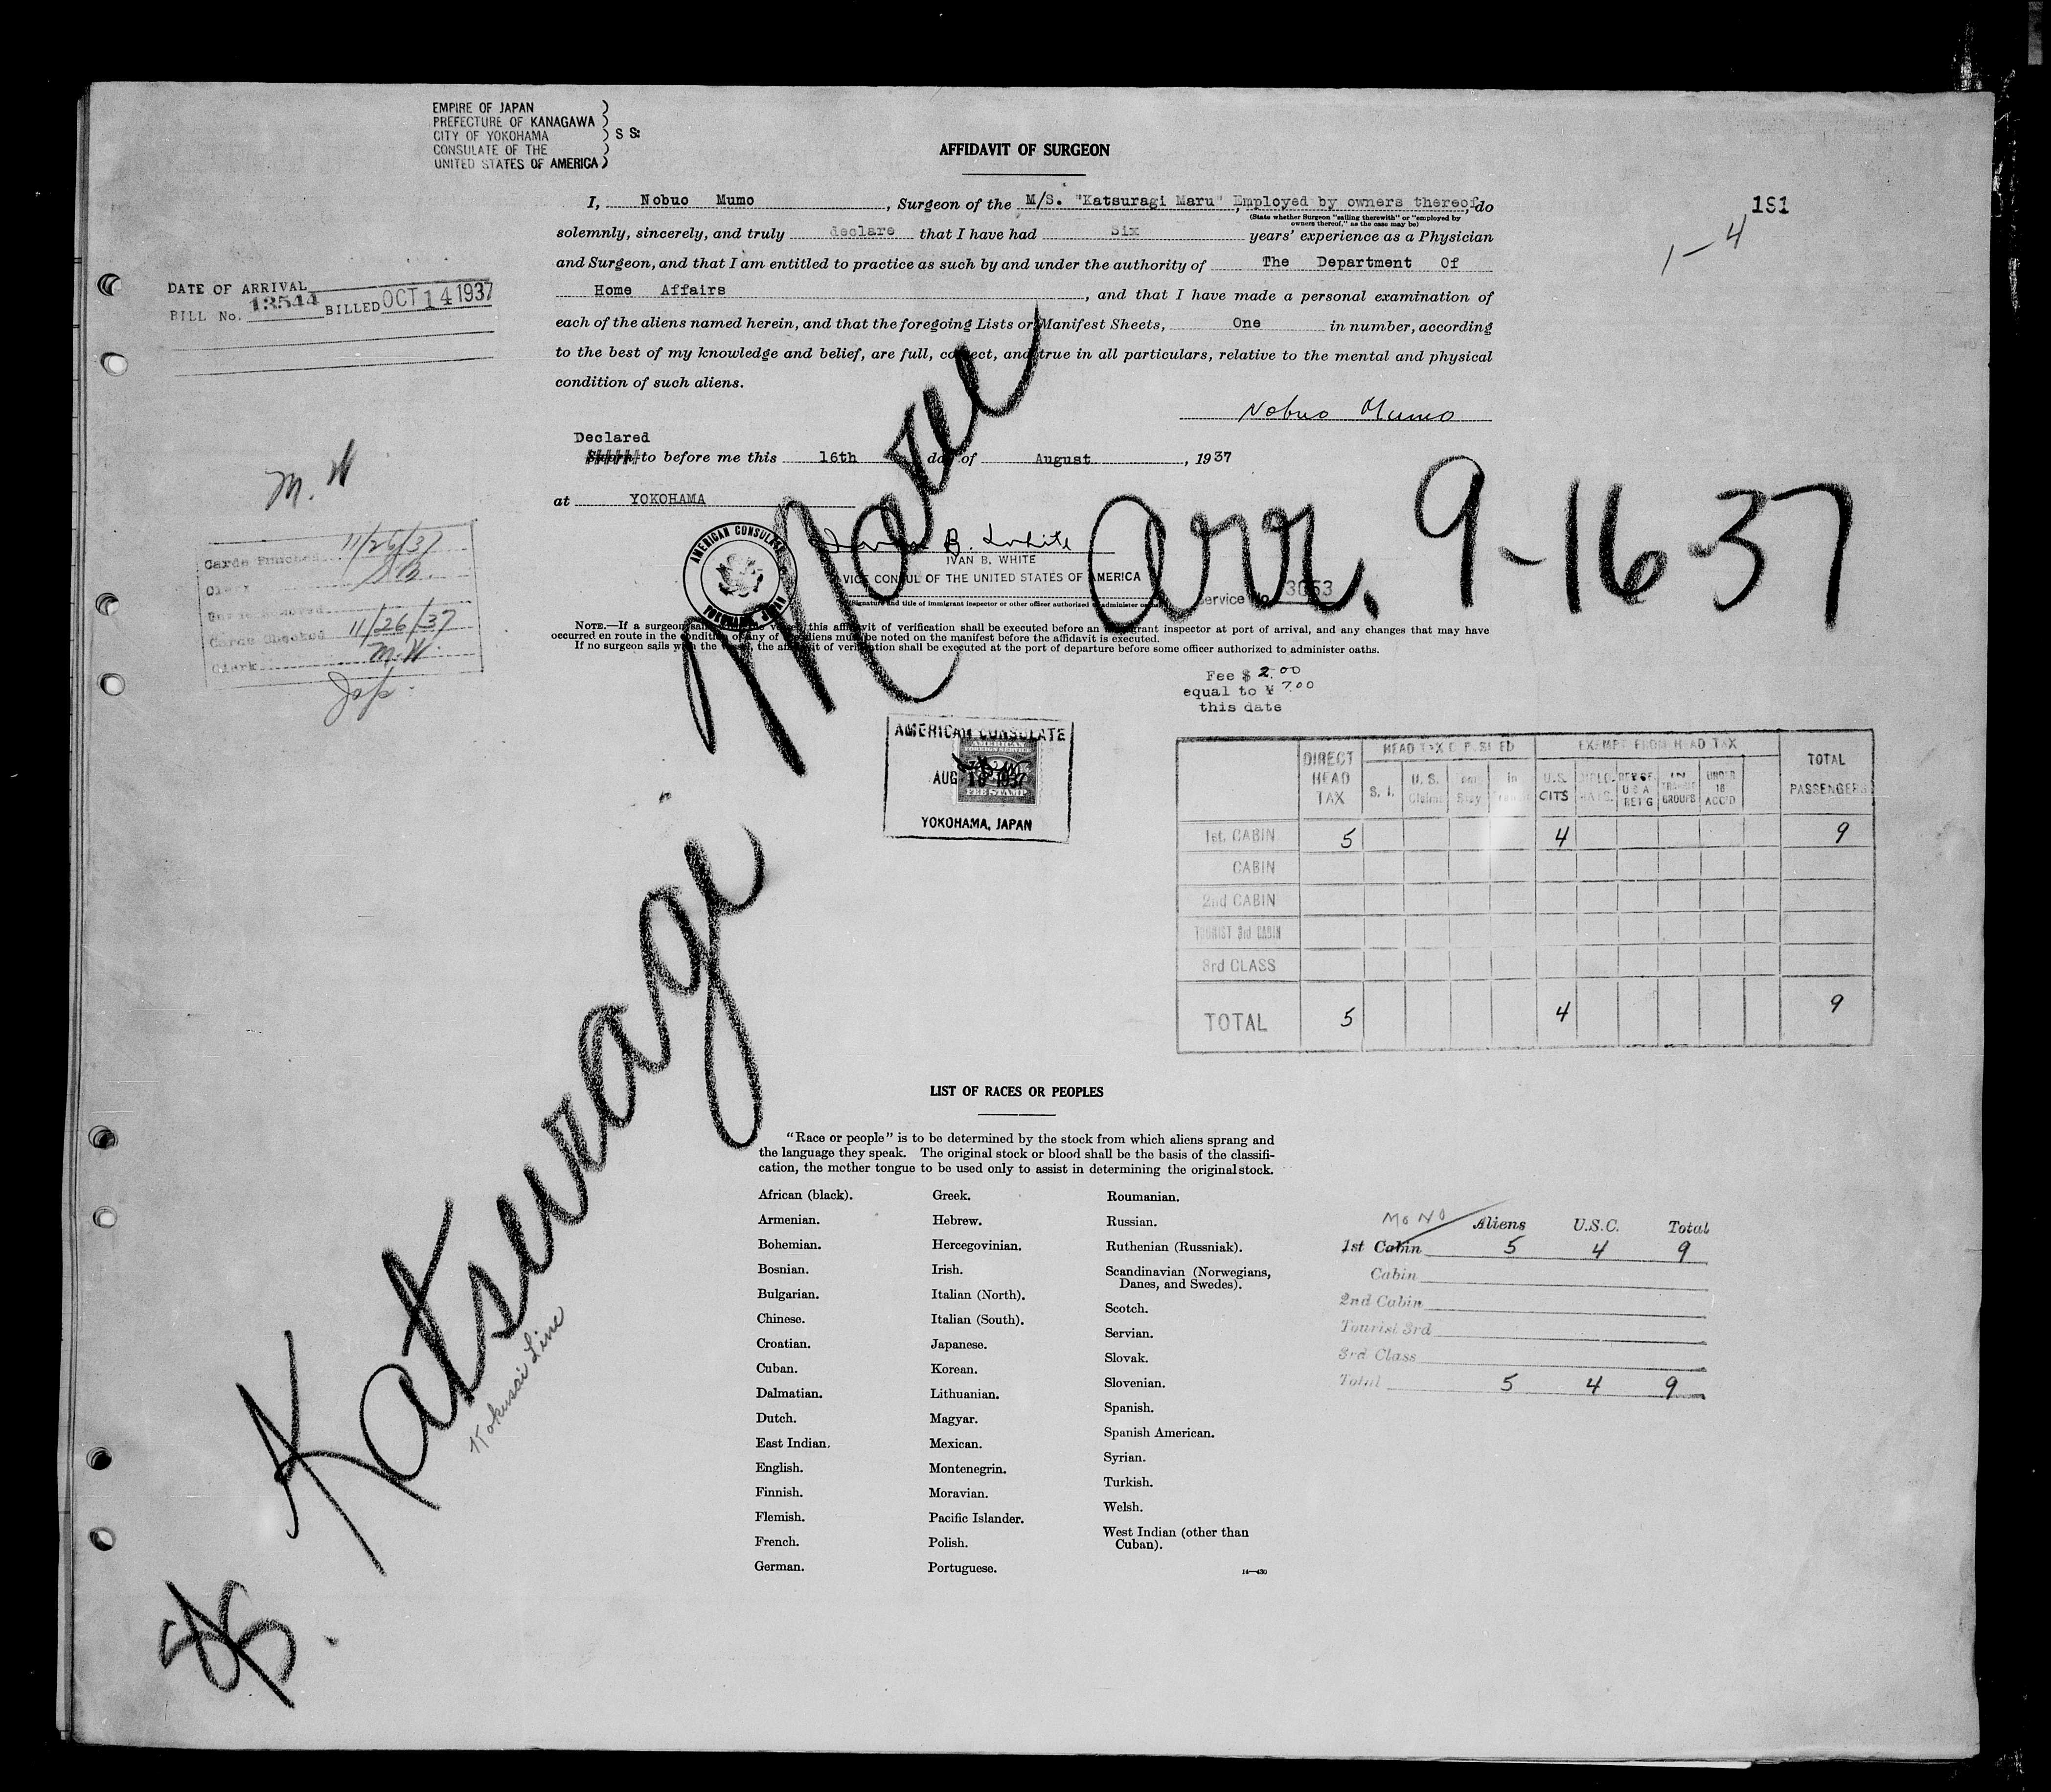 EMPIRE OF JAPAN )
PREFECTURE OF KANAGAWA )
CITY OF YOKOHAMA ) S S:
CONSULATE OF THE )
UNITED STATES OF AMERICA )
AFFIDAVIT OF SURGEON
191
1-4
I, Nobuo Mumo, Surgeon of the M/S. "Katsuragi Maru" Employed by owners thereof, do
(State whether Surgeon "sailing therewith" or "employed by
owners thereof," as the case may be)
solemnly, sincerely, and truly declare that I have had Six years' experience as a Physician
and Surgeon, and that I am entitled to practice as such by and under the authority of The Department Of
Home Affairs, and that I have made a personal examination of
each of the aliens named herein, and that the foregoing Lists or Manifest Sheets, One in number, according
to the best of my knowledge and belief, are full, correct, and true in all particulars, relative to the mental and physical
condition of such aliens.
Nobuo Mumo
DATE OF ARRIVAL
BILL No. 13544 BILLED OCT 14 1937
Declared
Sworn to before me this 16th day of August, 1937
at YOKOHAMA
Ivan B. White
IVAN B. WHITE
VICE CONSUL OF THE UNITED STATES OF AMERICA
(Signature and title of immigrant inspector or other officer authorized to administer oaths)
Service No. 3053
AMERICAN CONSULATE
YOKOHAMA, JAPAN
Arr. 9-16-37
M. W
Cards Punched 11/26/37
Clerk S.B.
Cards Checked 11/26/37
Clerk M.W.
Jap.
NOTE.—If a surgeon sails with the vessel, this affidavit of verification shall be executed before an immigrant inspector at port of arrival, and any changes that may have
occurred en route in the condition of any of the aliens must be noted on the manifest before the affidavit is executed.
If no surgeon sails with the vessel, the affidavit of verification shall be executed at the port of departure before some officer authorized to administer oaths.
Fee $ 2.00
equal to ¥ 7.00
this date
AMERICAN CONSULATE
AMERICAN
FOREIGN SERVICE
AUG 16 1937
FEE STAMP
YOKOHAMA, JAPAN
DIRECT HEAD TAX
HEAD TAX DEPOSITED
EXEMPT FROM HEAD TAX
TOTAL PASSENGERS
S. I. U. S. Claims Temp Stay In Transit U.S. CITS DIPLO-MATS. IN TRANSIT GROUPS UNDER 16 ACC'D
1st. CABIN 5 4 9
CABIN
2nd CABIN
TOURIST 3rd CABIN
3rd CLASS
TOTAL 5 4 9
Katsuragi Maru
Kokusai Line
LIST OF RACES OR PEOPLES
"Race or people" is to be determined by the stock from which aliens sprang and
the language they speak. The original stock or blood shall be the basis of the classifi-
cation, the mother tongue to be used only to assist in determining the original stock.
African (black).
Armenian.
Bohemian.
Bosnian.
Bulgarian.
Chinese.
Croatian.
Cuban.
Dalmatian.
Dutch.
East Indian.
English.
Finnish.
Flemish.
French.
German.
Greek.
Hebrew.
Hercegovinian.
Irish.
Italian (North).
Italian (South).
Japanese.
Korean.
Lithuanian.
Magyar.
Mexican.
Montenegrin.
Moravian.
Pacific Islander.
Polish.
Portuguese.
Roumanian.
Russian.
Ruthenian (Russniak).
Scandinavian (Norwegians,
Danes, and Swedes).
Scotch.
Servian.
Slovak.
Slovenian.
Spanish.
Spanish American.
Syrian.
Turkish.
Welsh.
West Indian (other than
Cuban).
14—430
Aliens U.S.C. Total
1st Cabin 5 4 9
Cabin
2nd Cabin
Tourist 3rd
3rd Class
Total 5 4 9